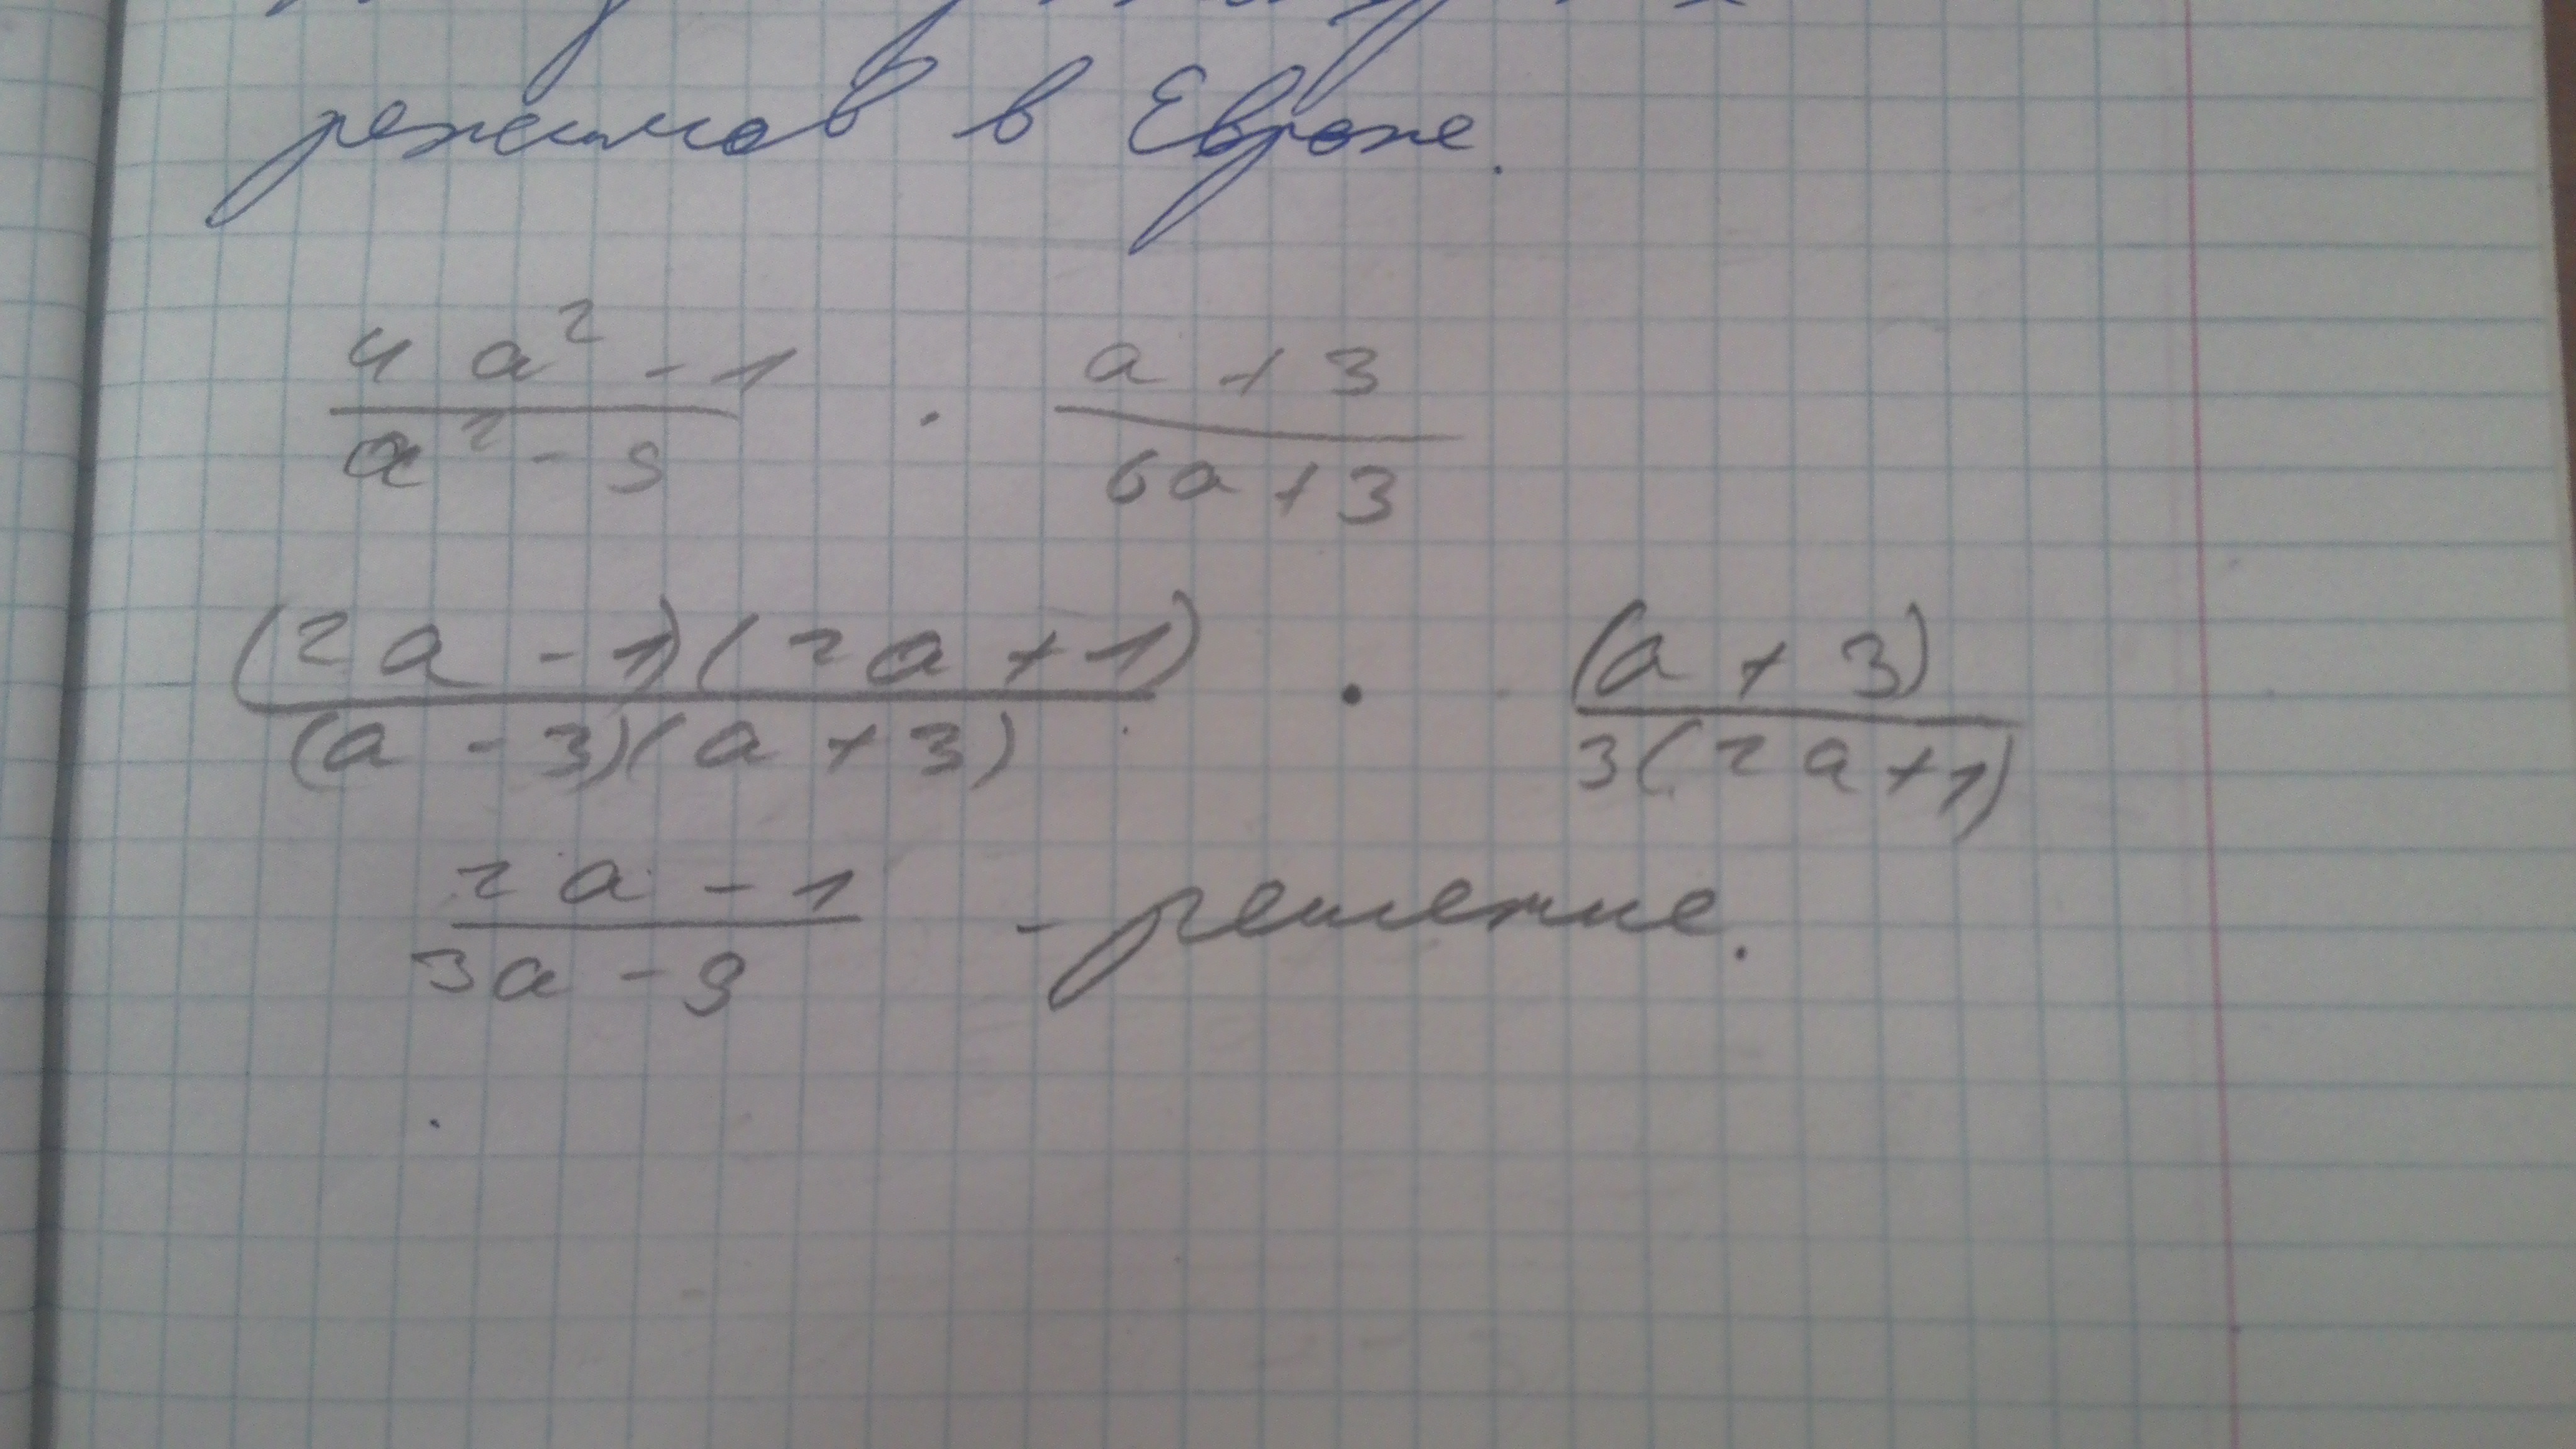 режимов в Европе.
4a² - 1 / a² - 9 · a + 3 / 6a + 3
(2a - 1)(2a + 1) / (a - 3)(a + 3) · (a + 3) / 3(2a + 1)
2a - 1 / 3a - 9 - решение.